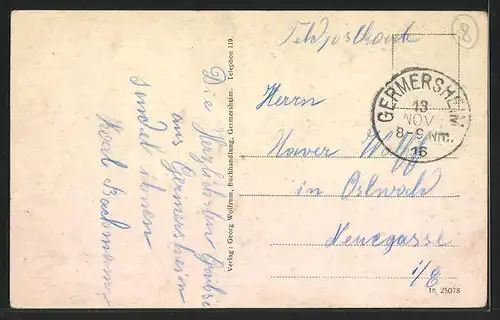 Feldpostkarte
GERMERSHEIM
13
NOV
8-9 Nm.
16
Herrn
Xaver Wolff
in Ostwald
Neuegasse
i/E
Die Herzlichsten Grüße
aus Germersheim
sendet ihnen
Karl Bachmann
Verlag: Georg Wolfrum, Buchhandlung, Germersheim. Telephon 119.
In 25078
8